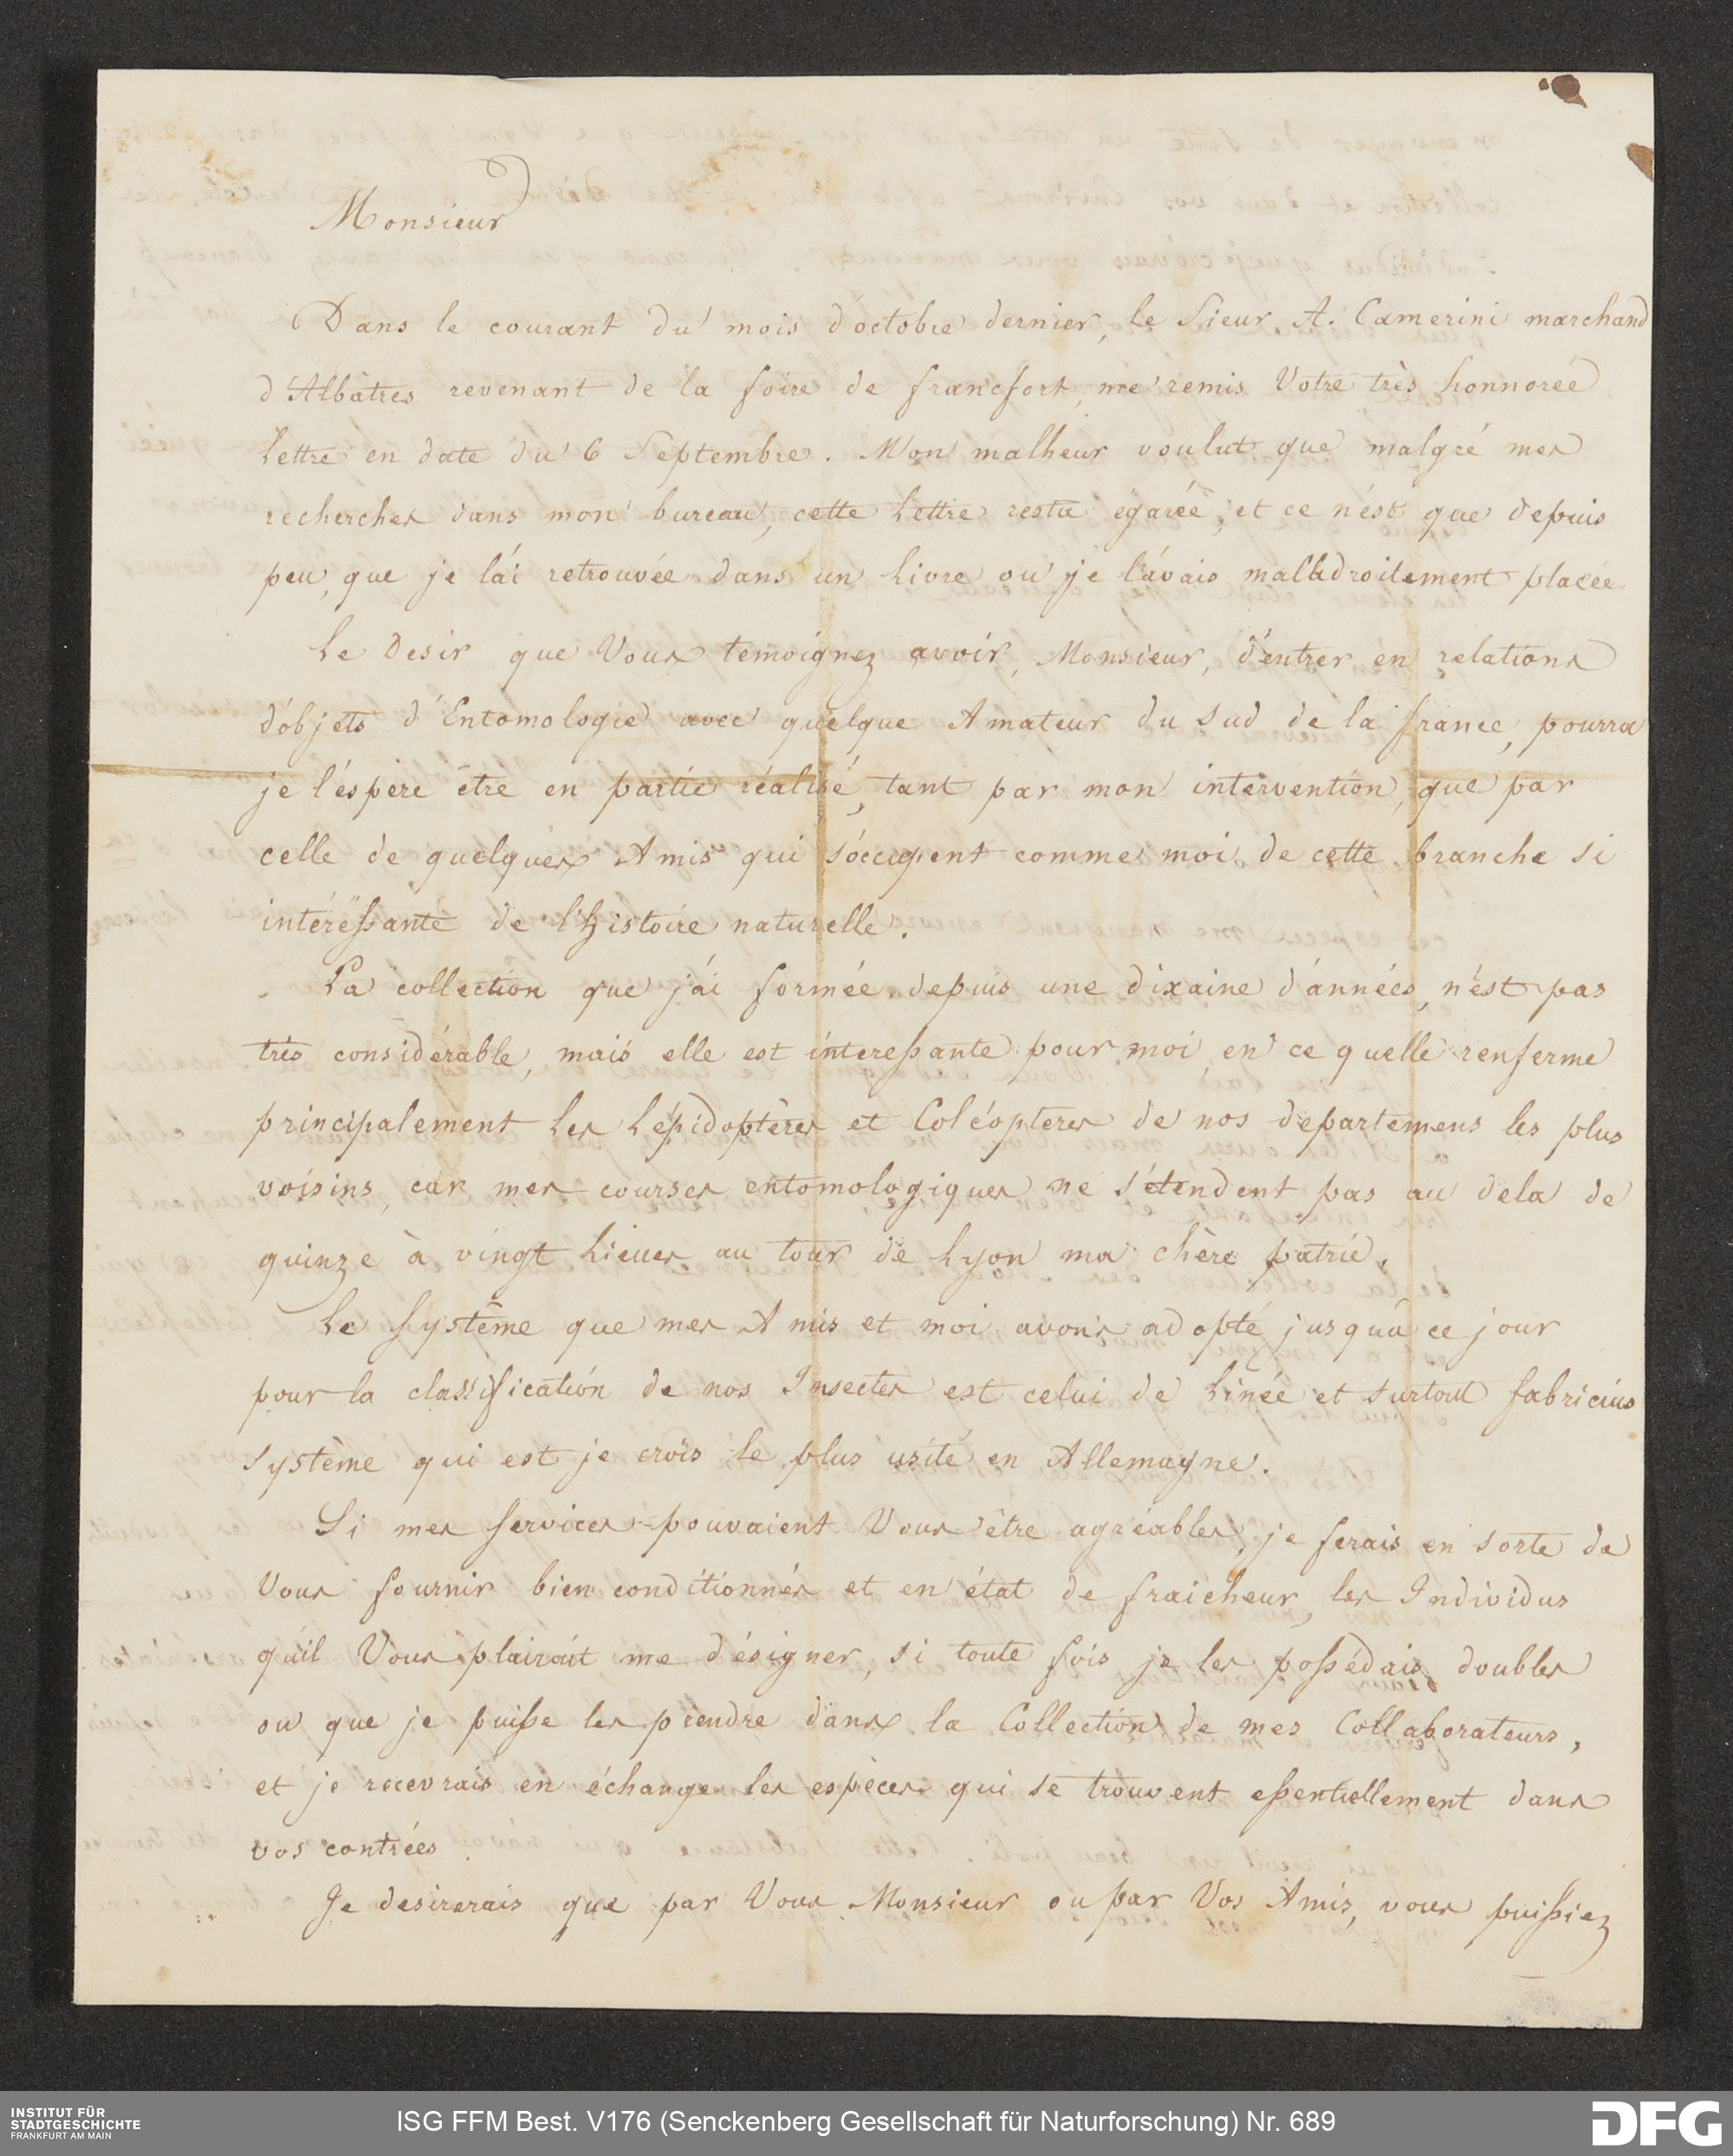 Monsieur
Dans le courant du mois d'octobre dernier, le Sieur A. Camerini marchand
d'Albâtres revenant de la foire de francfort, me remis Votre très honnoreé
Lettre en date du 6 Septembre. Mon malheur voulut que malgré mes
recherches dans mon bureau, cette Lettre resta égareé, et ce n'ést que depuis
peu, que je lái retrouvée dans un Livre ou je l'ávais malladroitement placée
Le Desir que Vous temoignez avoir, Monsieur, d'entrer en relations
d'objets d'Entomologie avec quelque Amateur du Sud de la france, pourra
je l'éspère être en partie réalisé, tant par mon intervention, que par
celle de quelques Amis qui s'óccupent comme moi de cette branche si
intéreßante de l'Histoire naturelle.
La collection que j'ái formée depuis une dixaine d'années, n'ést pas
très considérable, mais elle est intereßante pour moi en ce quelle renferme
principalement les Lépidoptères et Coléopteres de nos departemens les plus
voisins, car mes courses entomologiques ne s'étendent pas au dela de
quinze à vingt Lieues au tour de Lyon ma chère patrie.
Le Système que mes Amis et moi avons adopté jusquà ce jour
pour la classification de nos Insectes est celui de Linée et surtout fabricius
système qui est je crois le plus usité en Allemagne.
Si mes services pouvaient Vous être agréables, je ferais en sorte de
Vous fournir bien conditionnés et en état de fraicheur, les Individus
qu'il Vous plairait me désigner, si toute fois je les poßédais doubles
ou que je puiße les prendre dans la Collection de mes Collaborateurs,
et je recevrais en échange les espèces qui se trouvent eßentiellement dans
vos contrées.
Je desirerais que par Vous Monsieur ou par Vos Amis, vous puißiez
INSTITUT FÜR
STADTGESCHICHTE
FRANKFURT AM MAIN
ISG FFM Best. V176 (Senckenberg Gesellschaft für Naturforschung) Nr. 689
DFG